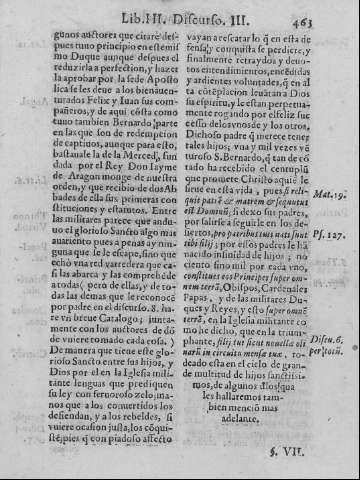 Lib. III. Discurso. III. 463
gunos auctores que citarè des-
pues tuuo principio en este mis
mo Duque aunque despues el
reduzirla a perfection, y hazer
la aprobar por la sede Aposto
lica se les deue a los bienauen-
turados Felix y Iuan sus com-
pañeros, y de aqui cõsta como
tuuo tambien Bernardo parte
en las que son de redempcion
de captiuos, aunque para esto,
bastaua le la de la Merced, fun
dada por el Rey Don Iayme
de Aragon monge de nuestra
orden, y que recibio de dos Ab
bades de ella sus primeras con
stituciones y estatutos. Entre
las militares parece que andu-
uo el glorioso Sancto algo mas
auariento pues a penas ay nin-
guna que se le escape, sino que
echò vna red varredera que ca-
si las abarca y las comprehẽde
a todas (pero de ellas, y de to-
das las demas que le reconocẽ
por padre en el discurso. 8. ha-
re vn breue Catalogo; junta-
mente con los auctores de dõ-
de vuiere tomado cada cosa.)
De manera que tiene este glo-
rioso Sancto entre sus hijos, y
Dios por el en la Iglesia mili-
tante lenguas que prediquen
su ley con feruoroso zelo; ma-
nos que a los conuertidos los
defiendan, y a los rebeldes, si
vuiere ocasion justa, los cõqui-
stẽ; pies q̃ con piadoso affecto
vayan a rescatar lo q̃ en esta de
fensa, y conquista se perdiere, y
finalmente retraydos y deuo-
tos entendimientos, encẽdidas
y ardientes voluntades, q̃ en al
ta cõtẽplacion leuãtan a Dios
su espiritu, y le estan perpetua-
mente rogando por el feliz suc
cesso de los vnos de y los otros.
Dichoso padre q̃ merece tener
tales hijos; vna y mil vezes vẽ
turoso S. Bernardo, q̃ tan de cõ
tado ha recebido el centuplũ
que promete Christo a quiẽ le
siene en esta vida, pues si reli-
quit patrẽ & matrem & sequutus
est Dominũ, si dexo sus padres,
por salirse a seguirle en los de-
siertos, pro patribus tuis nati sunt
tibi filij; por essos padres le hã
nacido infinidad de hijos; no
ciento sino mil por cada vno,
constitues eos Principes super om-
nem terrã, Obispos, Cardenales
Papas, y de las militares Du
ques y Reyes, y esto super omnẽ
terrã, en la Iglesia militante co
mo he dicho, que en la trium-
phante, filij tui sicut nouella oli
uarũ in circuitu mensæ tuæ, ro-
deado esta en el cielo de gran-
de multitud de hijos sanctissi-
mos, de algunos dlos qua
les hallaremos tam-
bien menciõ mas
adelante.
Mat. 19.
Ps. 127.
Discu. 6.
per totũ.
§. VII.